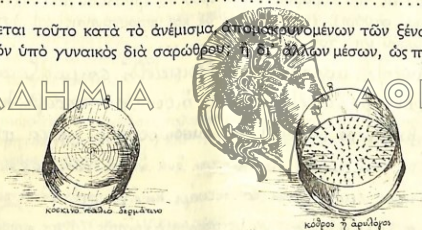 εται τοῦτο κατὰ τὸ ἀνέμισμα, ἀπομακρυνομένων τῶν ξένω
ὸν ὑπὸ γυναικὸς διὰ σαρώθρου; ἢ δι' ἄλλων μέσων, ὡς π
ΑΔΗΜΙΑ ΑΘΗ
κόσκινο παληὸ δερμάτινο
κόθρος ἢ ἀρυλόγος